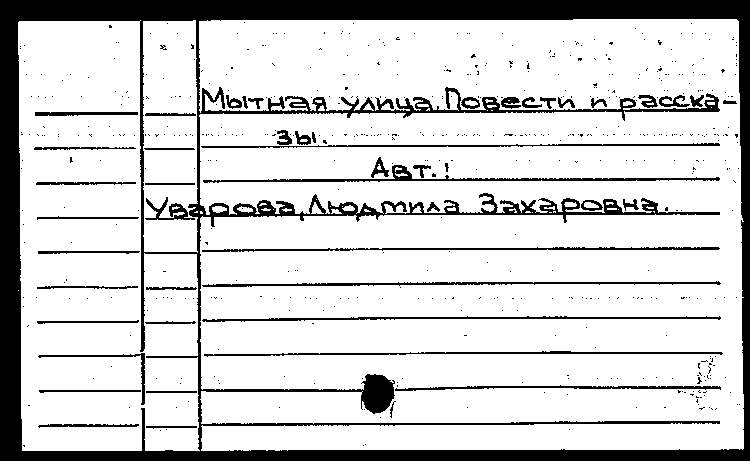 Мытная улица. Повести и расска-
зы.
Авт.:
Уварова, Людмила Захаровна.